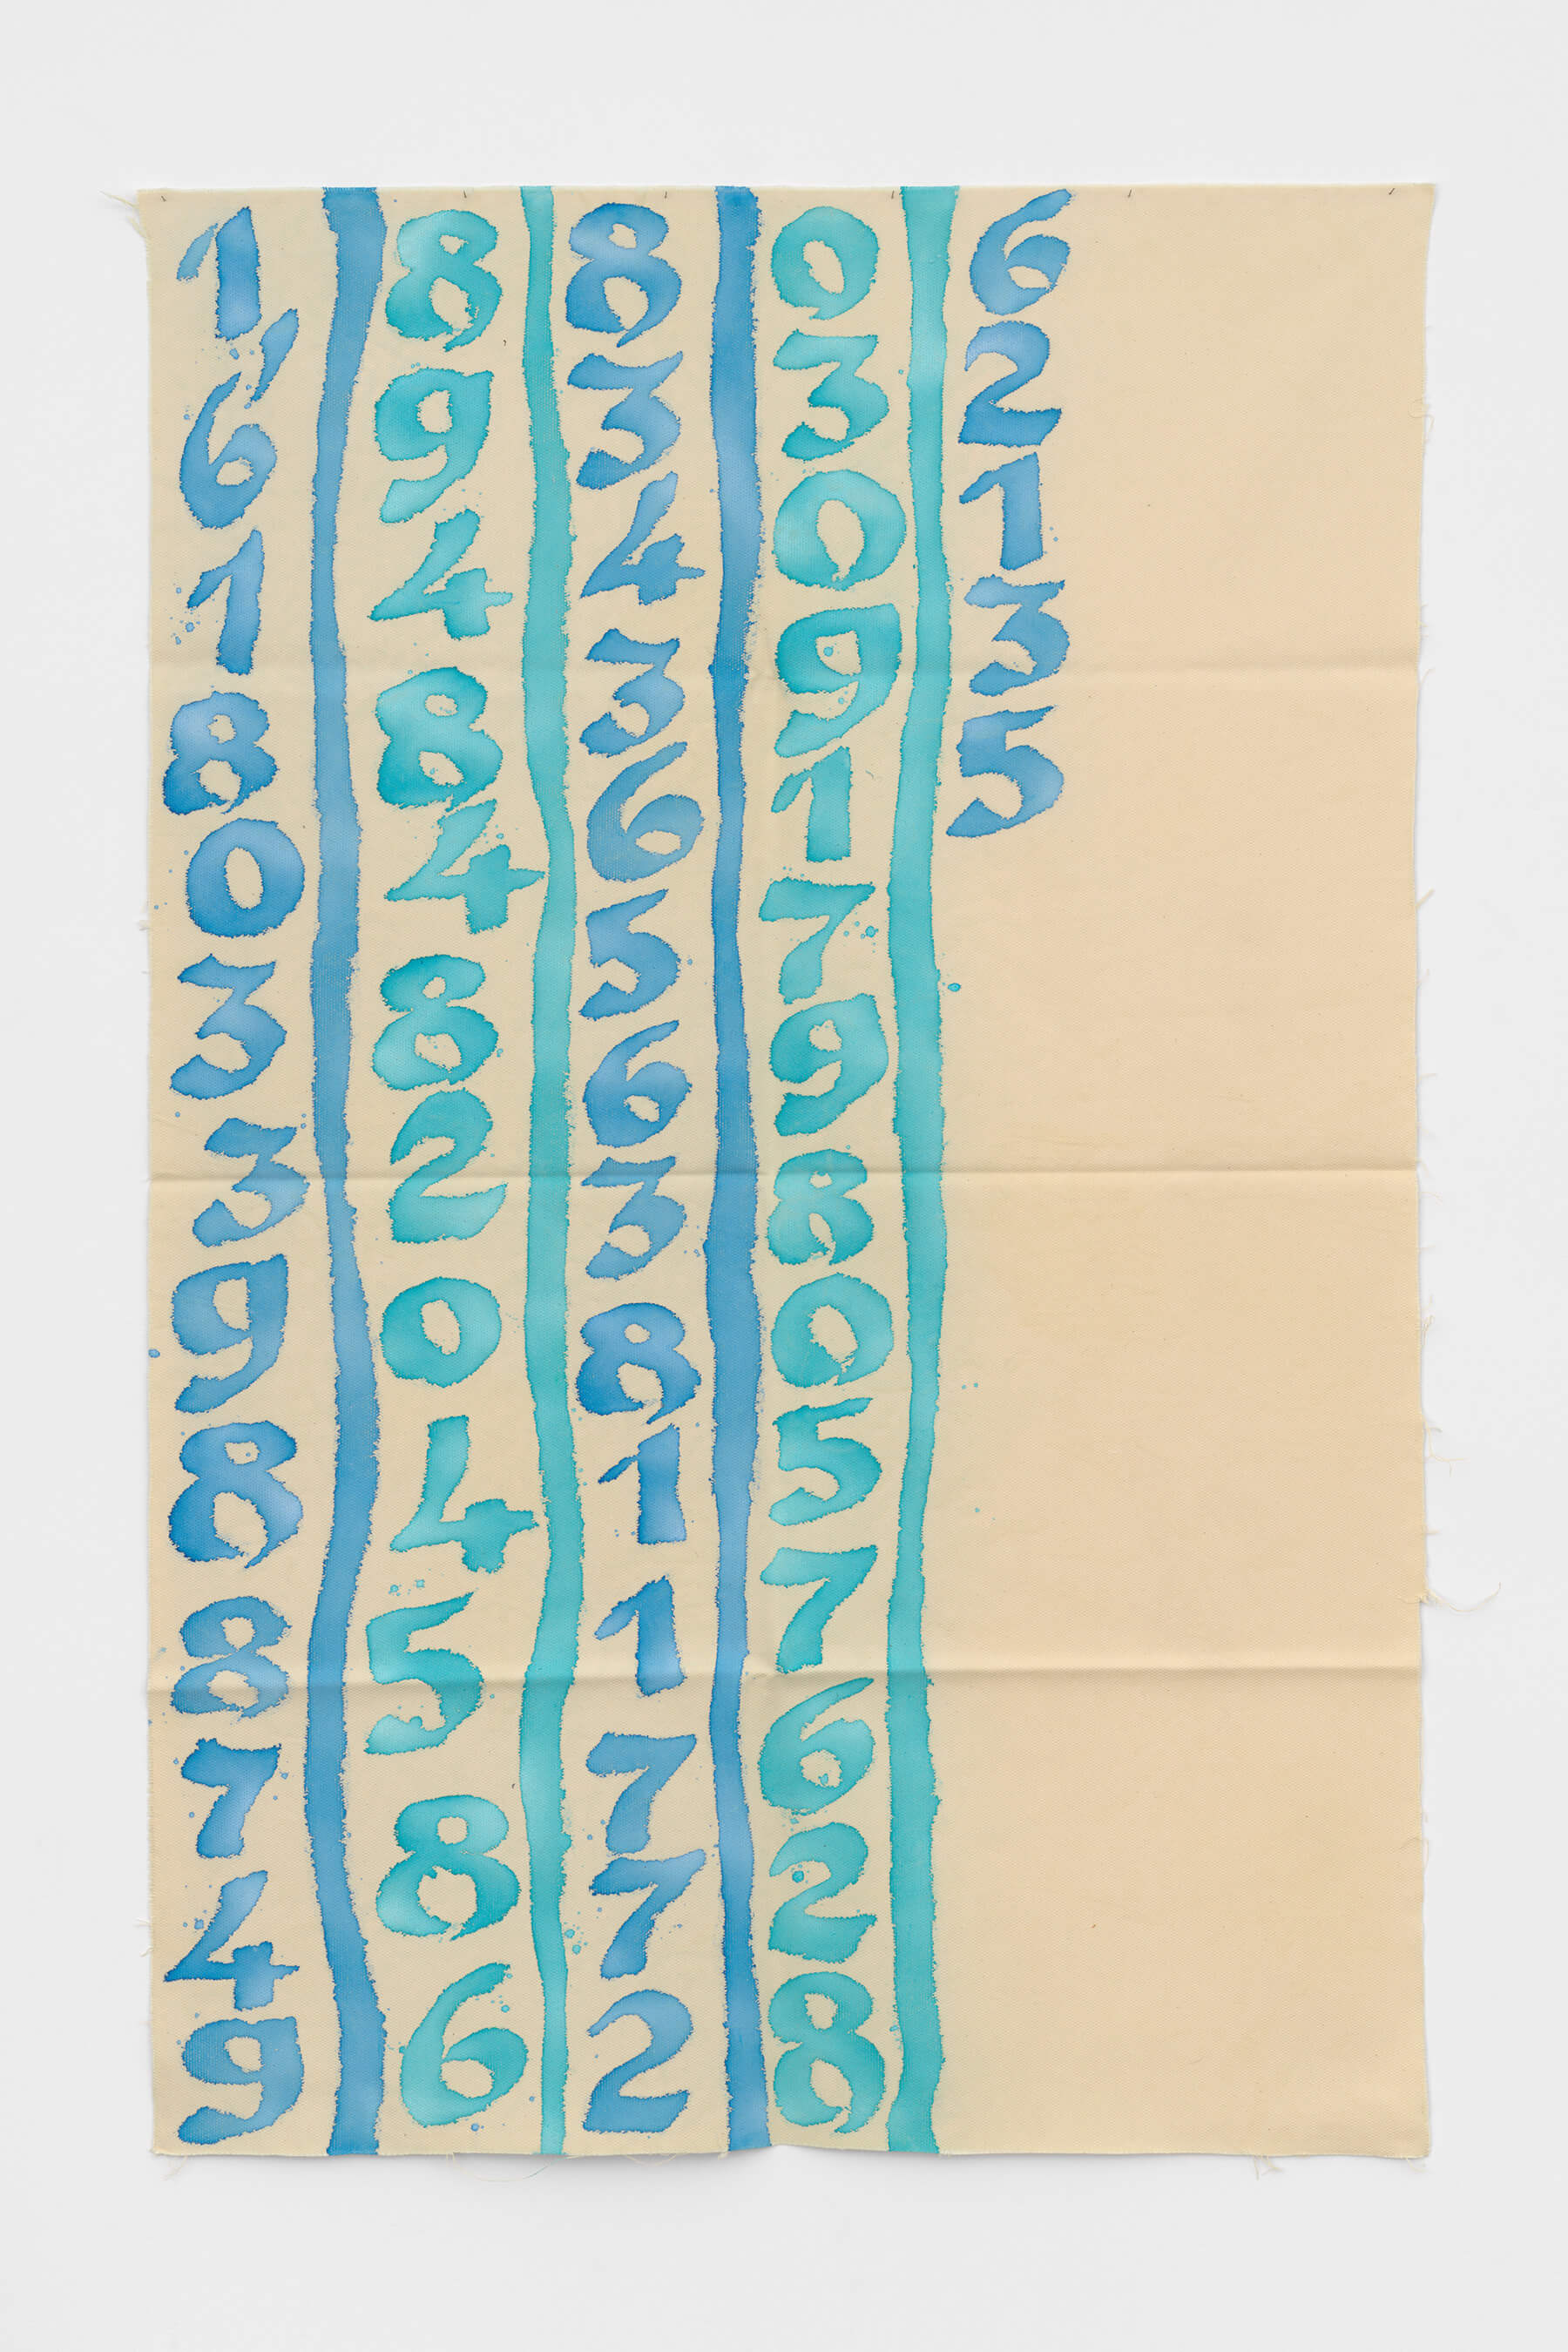 1,618033988749
894848204586
83436563811772
03091798057628
62135